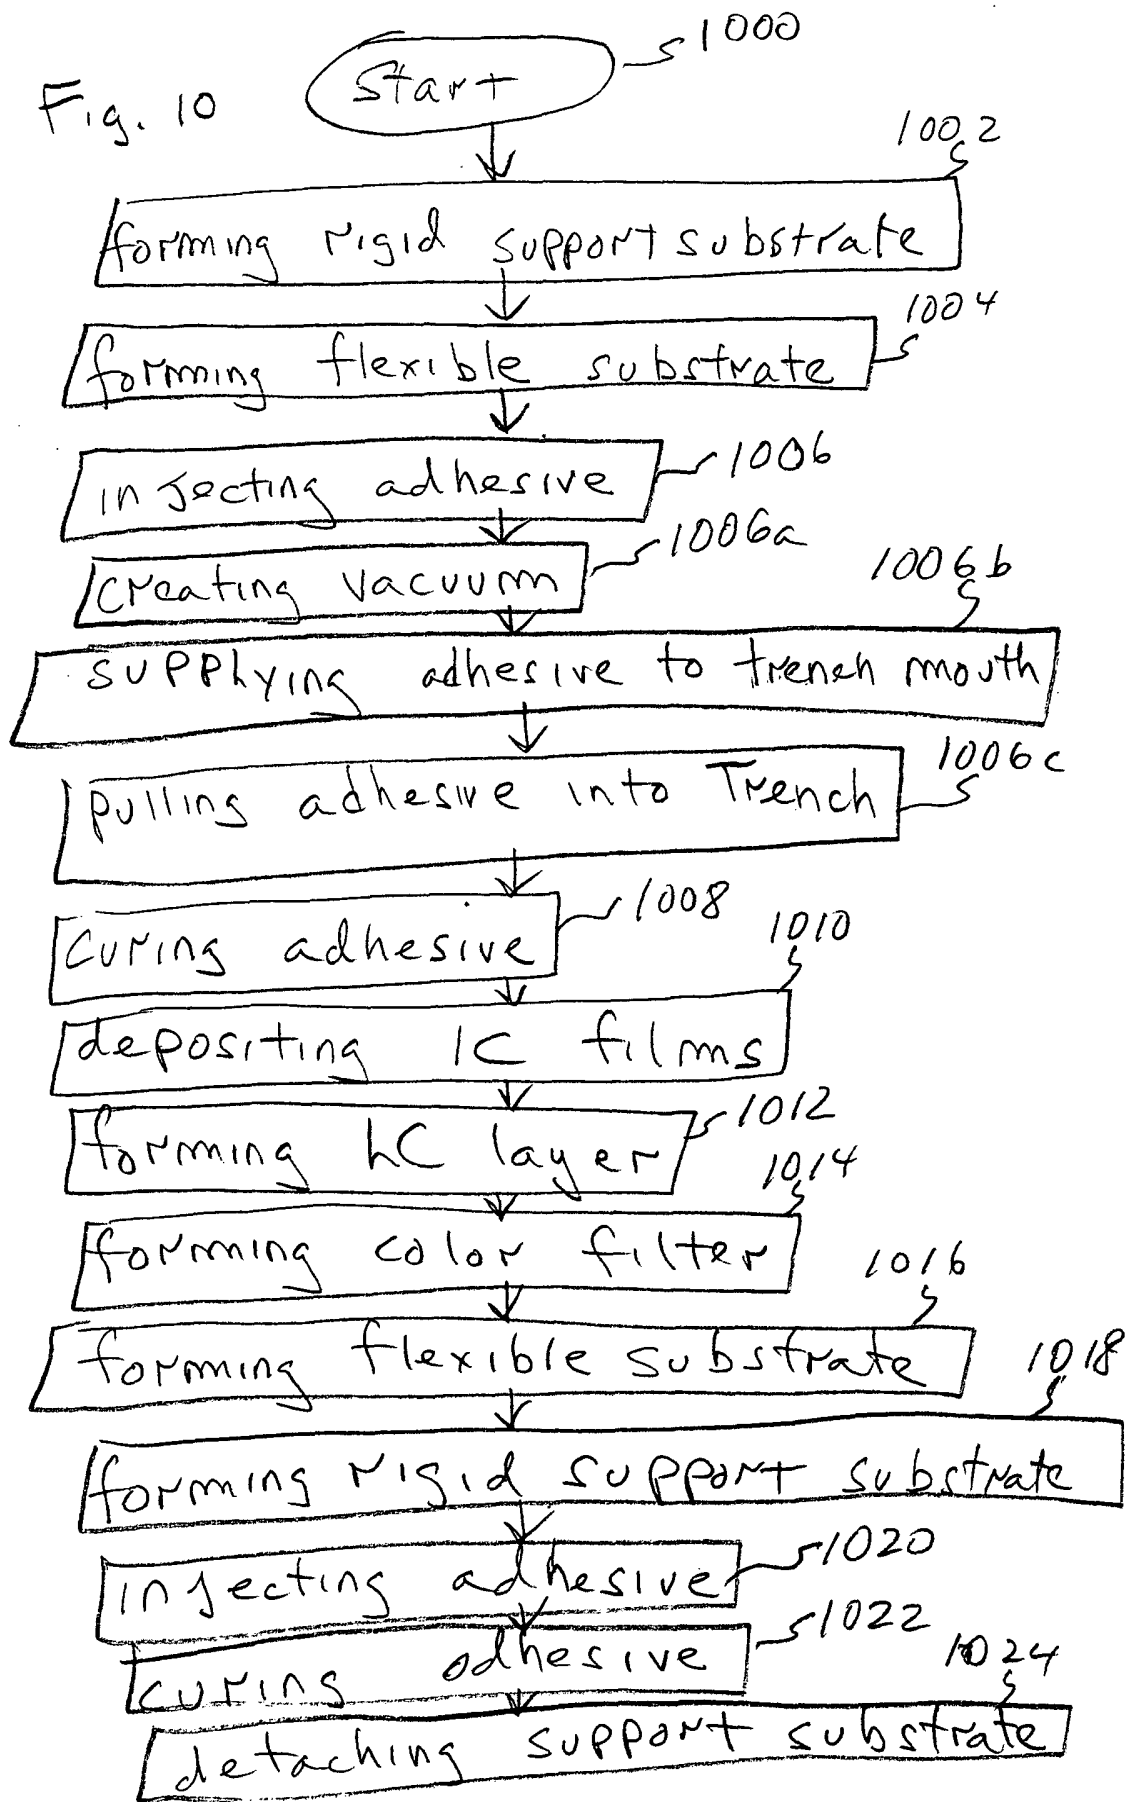 1000
Fig. 10
Start
1002
forming rigid support substrate
1004
forming flexible substrate
1006
injecting adhesive
1006a
creating vacuum
1006b
supplying adhesive to trench mouth
1006c
pulling adhesive into Trench
1008
curing adhesive
1010
depositing IC films
1012
forming LC layer
1014
forming color filter
1016
forming flexible substrate
1018
forming rigid support substrate
1020
injecting adhesive
1022
curing adhesive
1024
detaching support substrate